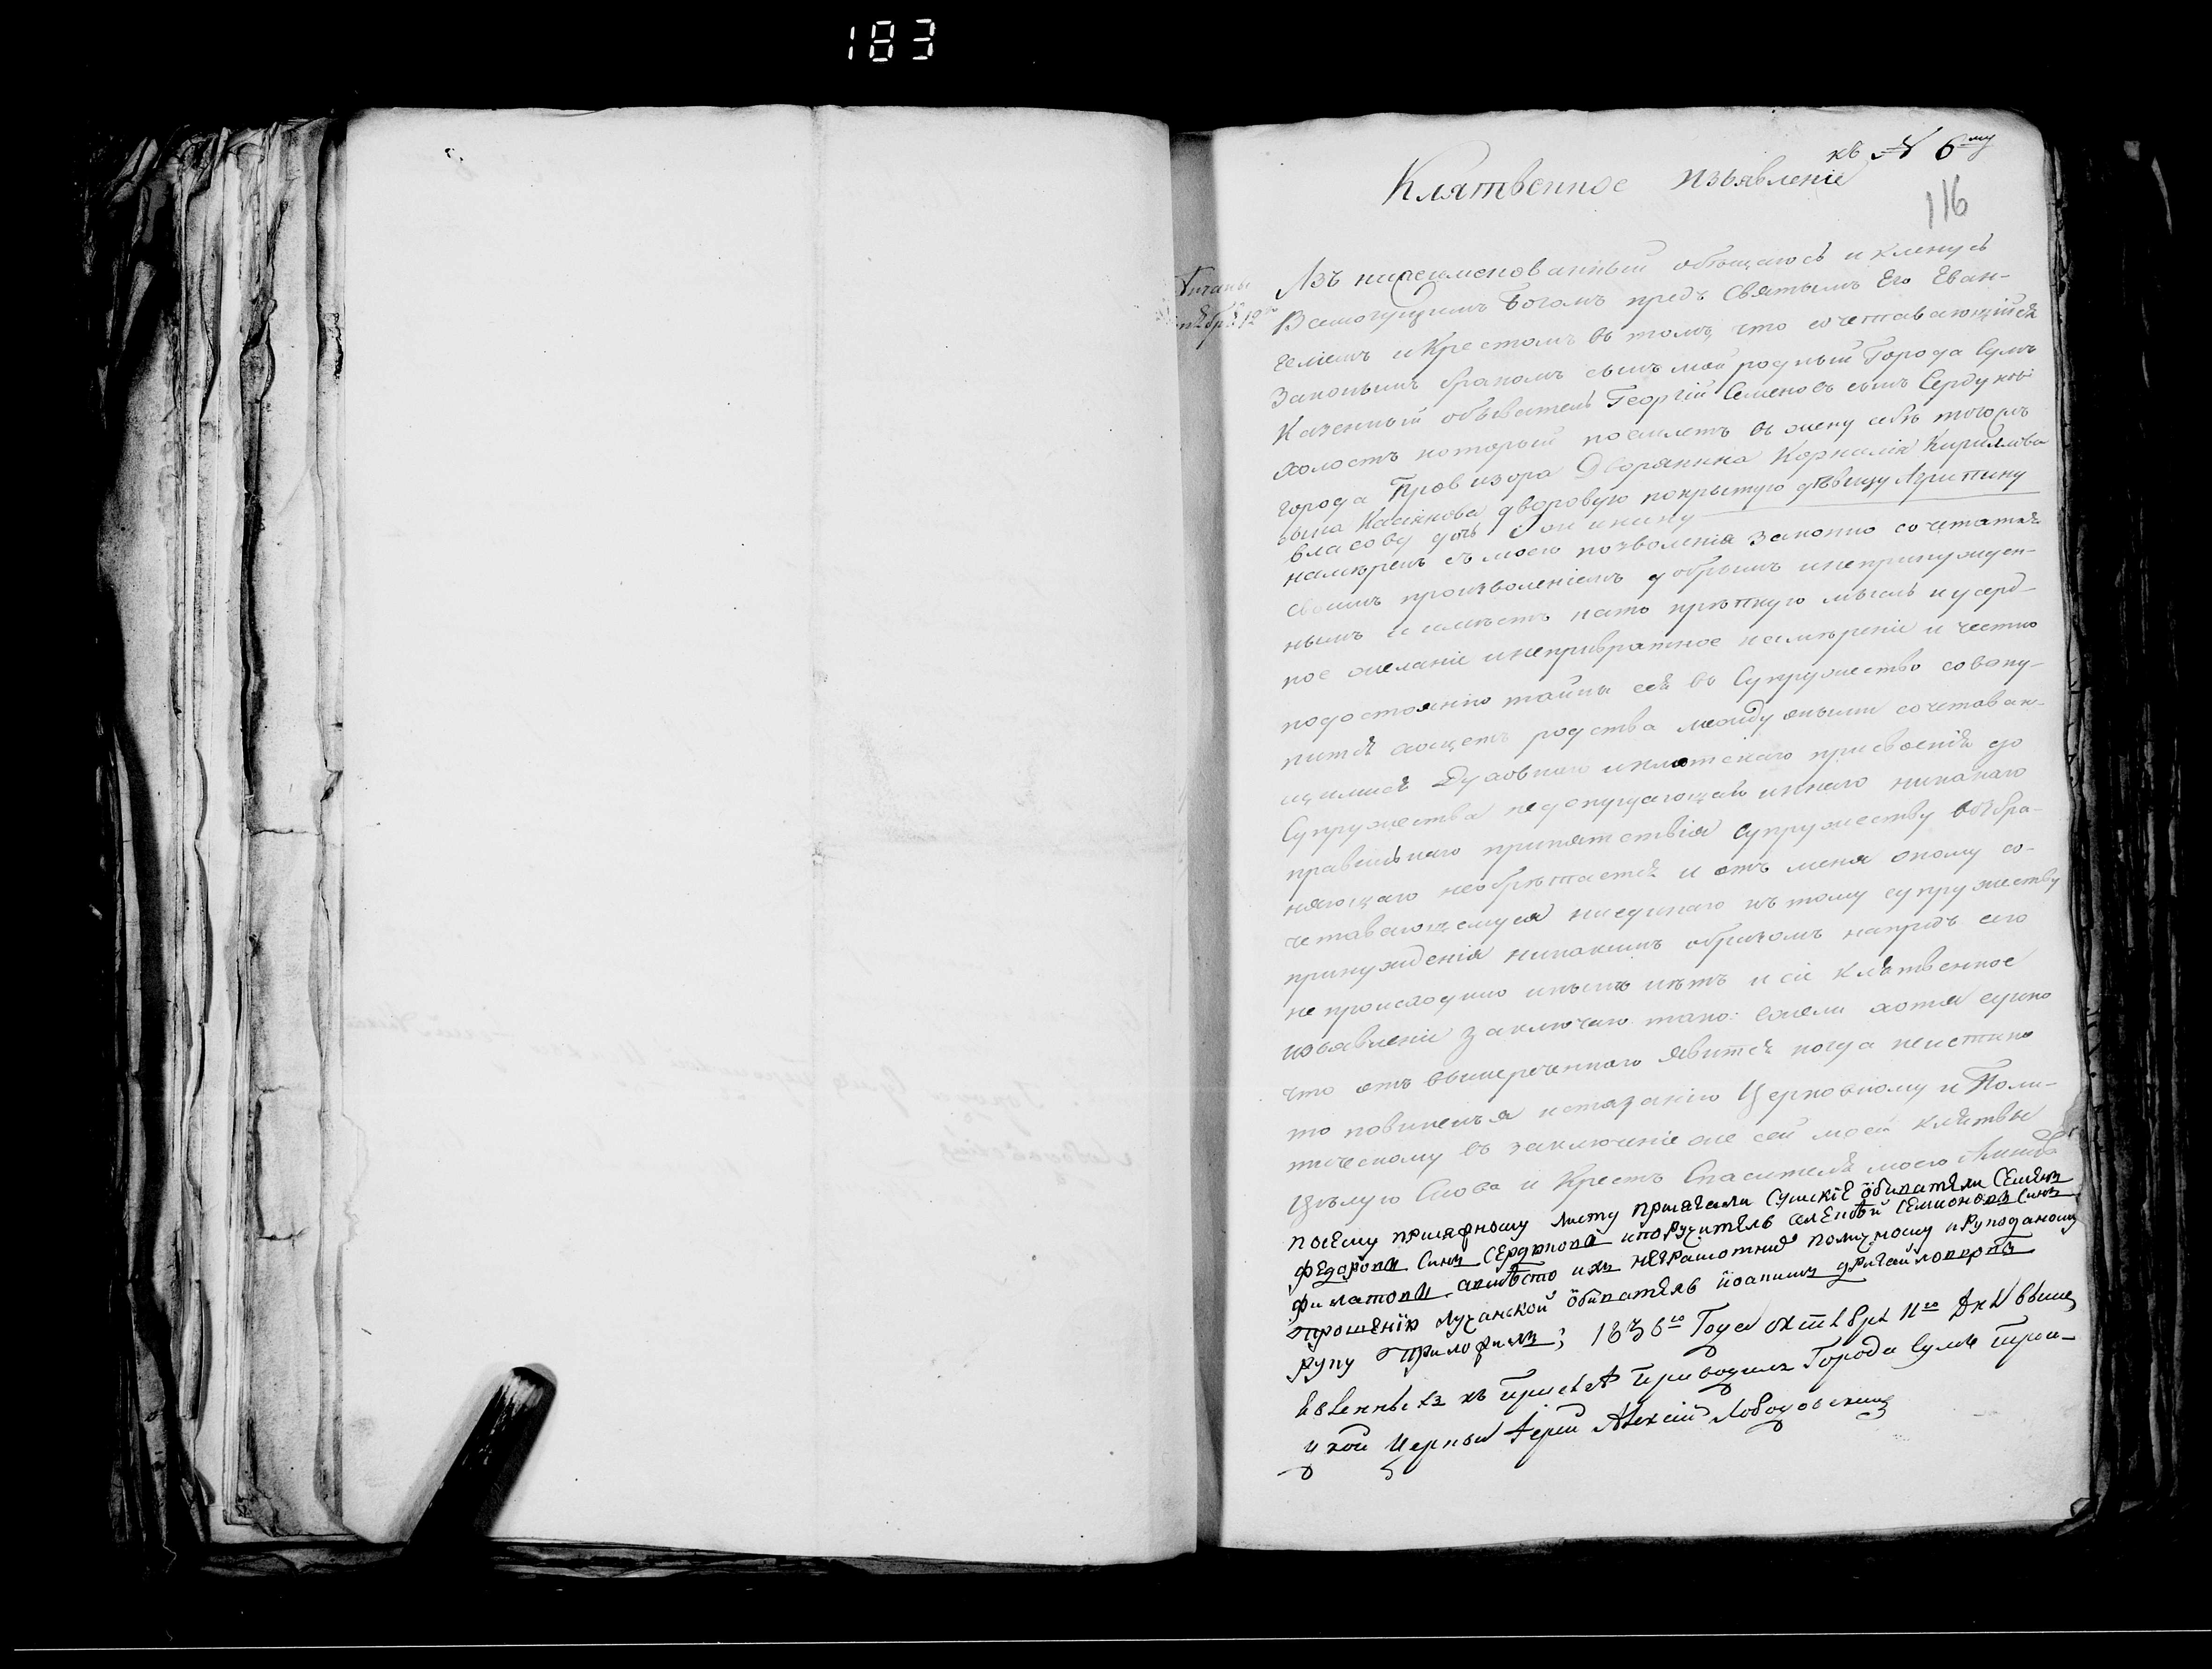 183
къ № 6му
Клятвенное изъявленіе
116
Азъ нижеименованный обѣщаюсь и кленусь
Всемогущимъ Богомъ предъ Святымъ Его Еван-
геліемъ и Крестомъ въ томъ, что сочетавающійся
Законнымъ бракомъ сынъ мой родный Города Сумъ
Казенный обыватель Георгій Семеновъ сынъ Сердюковъ
холостъ который поемлетъ въ жену себѣ тогожъ
города Провизора Дворянина Корнилія Кириллова
сына Касянкова дворовую покрытую дѣвицу Агрипину
власову дочь
намѣренъ съ моего позволенія законно сочетатся
своимъ произволеніемъ добрымъ и непринужден-
нымъ и имѣетъ на то крѣпкую мысль и усерд-
ное желаніе и непривратное намѣреніе и честно
по достоянію тайны сея въ Супружество совоку-
питься родства между оными сочетаван-
щимися Духовнаго и плотскаго присвоенія до
Супружества недопущающаго и инаго никакаго
правильнаго припятствія Супружеству возбра-
няющаго необрѣтается и отъ меня оному со-
четавающемуся ниединаго къ тому супружеству
принужденія никакимъ образомъ напредь сего
не происходило и нынѣ нѣтъ и сіе клятвенное
изъявленіе заключаю тако: ежели хотя едино
что отъ вышереченнаго явится когда неистинно
то повиненъ я истязанію Церковному и Поли-
тическому въ заключеніе же сей моей клятвы
Цѣлую Слова и Крестъ Спасителя моего Аминь
посему присяжному листу присягали Сумскіе обиватели Семенъ
Федоровъ Синъ Сердюковъ и поручитель Семіоновъ Синъ
Филатовъ а вмѣсто ихъ неграмотнихъ по ихному и рукоданому
прошенію Лучанской обиватель іоакимъ
руку приложилъ; 1836го Года октября 11го Дня выше
явленныхъ къ присягѣ приводилъ Города Сумъ Трои-
цкой Церкви Іерей Алексій Лободовскій